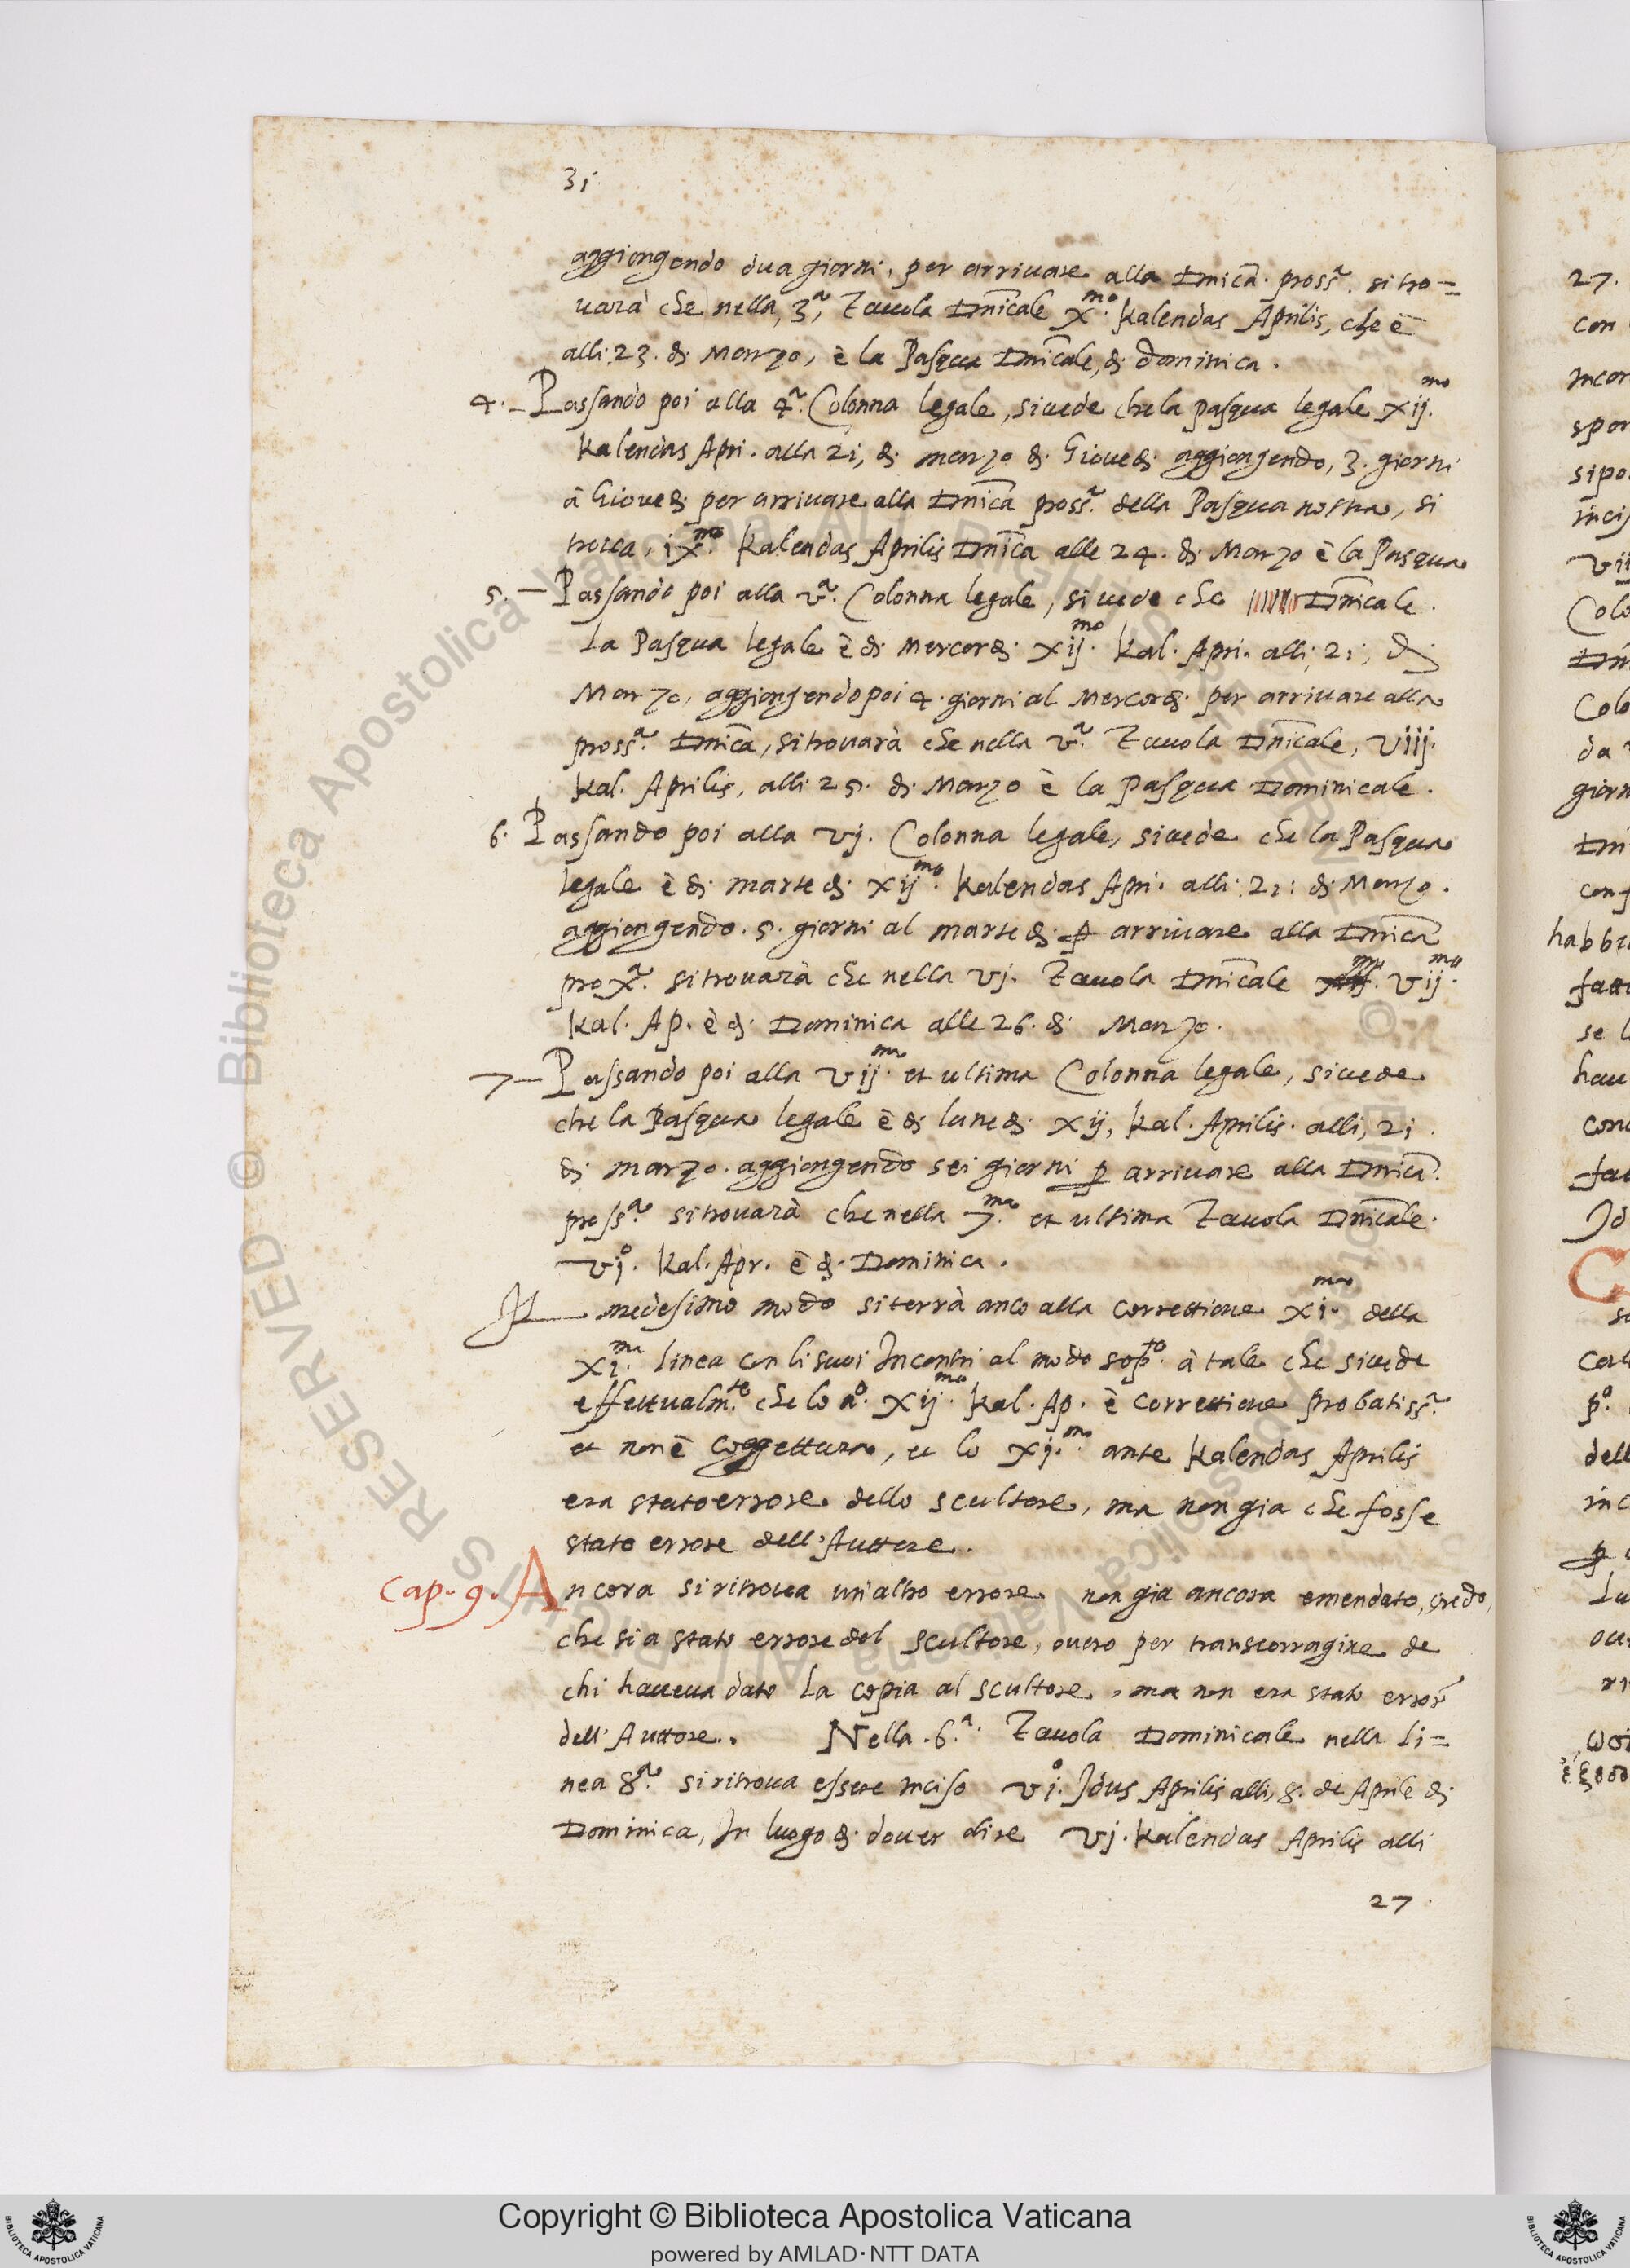 31
aggiongendo dua giorni, per arriuare alla Dnicã. prossª. si tro=
uarà che nella, 3ª, Tauola Dnicale Xmo. Kalendas Aprilis, che è
alli 23. di Marzo, è la Pasqua Dnicale, di dominica.
4. - Passando poi alla 4ª. Colonna legale, si uede che la pasqua legale xij.mo
Kalendas Apri. alla 21, di marzo di Giouedi aggiongendo, 3. giorni
à Giouedi per arriuare alla Dnica prossª. della Pasqua nostra, si
troua, iXmo. Kalendas Aprilis Dnica alle 24. di Marzo è la Pasqua
5. - Passando poi alla Vª. Colonna legale, si uede che Dnicale.
La Pasqua legale è di Mercordi xijmo. Kal. Apri. alli, 21, di
Marzo, aggiongendo poi 4. giorni al Mercordi. per arriuare alla
prossª. Dnica, si trouarà che nella Vª. Tauola Dnicale, Viij.
Kal. Aprilis, alli 25. di Marzo è la Pasqua Dominicale.
6. Passando poi alla Vj. Colonna legale, si uede che la Pasqua
legale è di martedi. xijmo. Kalendas Apri. alli. 21: di Marzo.
aggiongendo. 5. giorni al martedi. ꝑ arriuare alla Dnica
proxª. si trouarà che nella Vj. Tauola Dnicale Vij.mo
Kal. Ap. è di Dominica alle 26. di Marzo.
7 - Passando poi alla Vijma. et ultima Colonna legale, si uede
che la Pasqua legale è di lunedi. xij, Kal. Aprilis. alli, 21.
di marzo. aggiongendo sei giorni ꝑ arriuare alla Dnica.
prossª. si trouarà che nella 7.ma et ultima Tauola Dnicale.
Vi°. Kal. Apr. è di Dominica.
Il medesimo modo si terrà anco alla correttione Xi.ma della
Xi.ma linea con li suoi Incontri al modo sopto. à tale che si uede
effettualmte. che lo n°. Xijmo. Kal. Ap. è correttione probatissª.
et non è coggettura, et lo Xi.mo ante Kalendas Aprilis
era stato errore dello scultore, ma non gia che fosse
stato errore dell'Auttore.
Cap. 9. Ancora si ritroua un'altro errore non gia ancora emendato, credo,
che sia stato errore del scultore, ouero per transcorragine de
chi haueua dato la copia al scultore, ma non era stato error
dell'Auttore. Nella. 6ª. Tauola Dominicale nella li=
nea 8ª. si ritroua essere inciso Vi°. Idus Aprilis alli, 8. de Aprile di
Dominica, In luogo di. douer dire Vj. Kalendas Aprilis alli
27.
27.
con
incon
spon
sipo
incis
Vii
Colo
Dni
Colo
da
giorn
Dni
con
habbi
fatt
se l
hau
conc
fat
Id
C
co
p°.
dell
inc
ꝑ
Lu
ou
ri
Copyright © Biblioteca Apostolica Vaticana
powered by AMLAD·NTT DATA